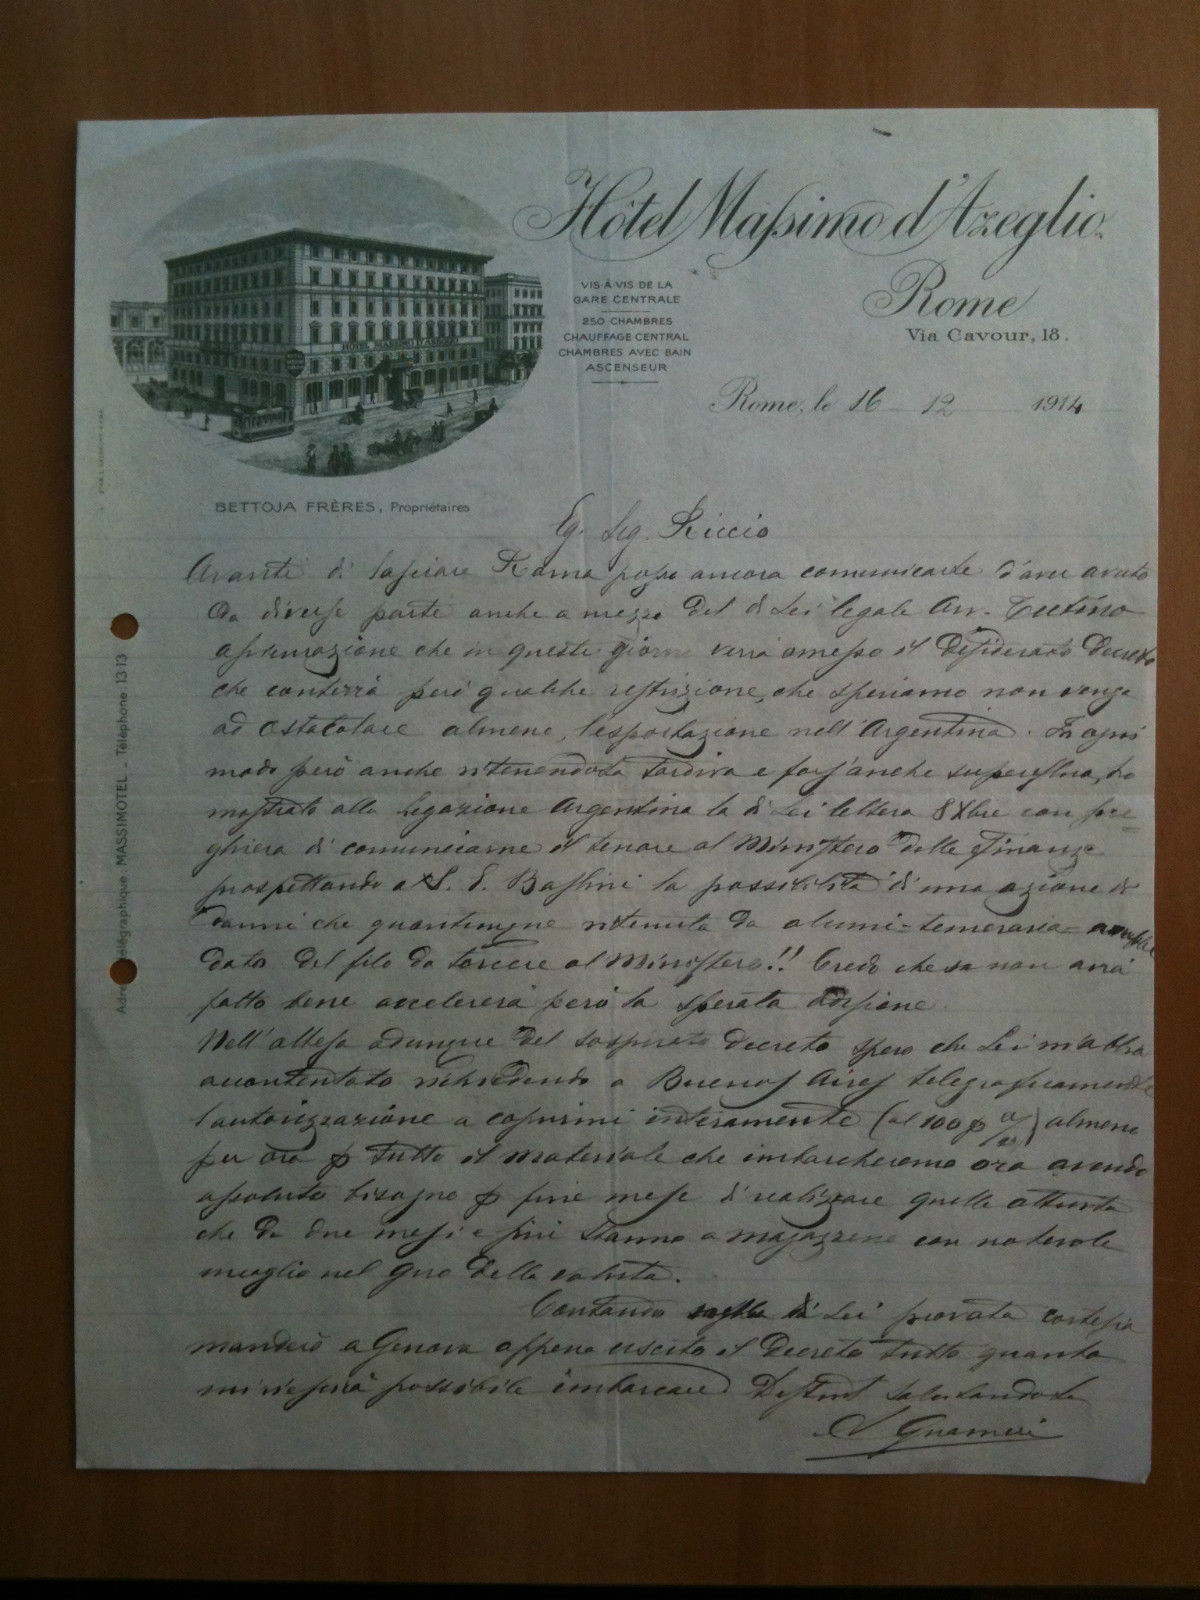 Hôtel Massimo d'Azeglio.
Rome
Via Cavour, 18.
VIS-À-VIS DE LA
GARE CENTRALE
250 CHAMBRES
CHAUFFAGE CENTRAL
CHAMBRES AVEC BAIN
ASCENSEUR
Rome, le 16 12 1914
BETTOJA FRÈRES, Propriétaires
Télégraphique MASSIMOTEL - Téléphone 13 13
Eg. Sig. Riccio
Avanti di lasciare Roma posso ancora comunicarle d'aver avuto
da diverse parti anche a mezzo del di Lei legale Avv.
assicurazione che in questi giorni verrà emesso il desiderato Decreto
che conterrà però qualche restrizione, che speriamo non venga
ad ostacolare almeno, l'esportazione nell'Argentina. In ogni
modo però anche ritenendola tardiva e fors'anche superflua, ho
mostrato alla Legazione Argentina la di Lei lettera 8 Xbre con pre=
ghiera di comunicarne il tenore al Ministero delle Finanze
prospettando a S. E. la possibilità di una azione di
danni che quantunque ritenuta da alcuni = temeraria =
dato del filo da torcere al Ministero!! Credo che se non avrà
fatto bene accelererà però la sperata
Nell'attesa adunque del sospirato decreto spero che Lei m'abbia
accontentato richiedendo a Buenos Aires telegraficamente
l'autorizzazione a coprirmi interamente (al 100 p %) almeno
per ora p tutto il materiale che imbarcheremo ora avendo
assoluto bisogno p fine mese di realizzare quelle
che da due mesi e più stanno a magazzeno con notevole
nel giro della valuta.
Contando sulla di Lei provata cortesia
manderò a Genova appena uscito il Decreto tutto quanto
mi riescirà possibile imbarcare. Distint salutandola